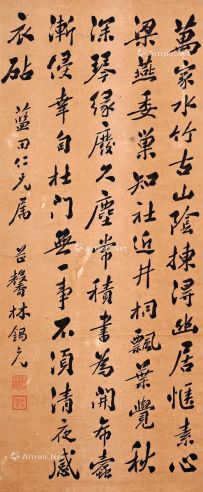 萬家水竹古山陰揀淂幽居愜素心
梁燕委巢知社近井桐飄葉覺秋
深琴緣廢久塵常積書為開希蠹
漸侵幸自杜門無一事不須清夜感
衣砧
藍田仁兄屬
芷馨林錫光
Artron.Net